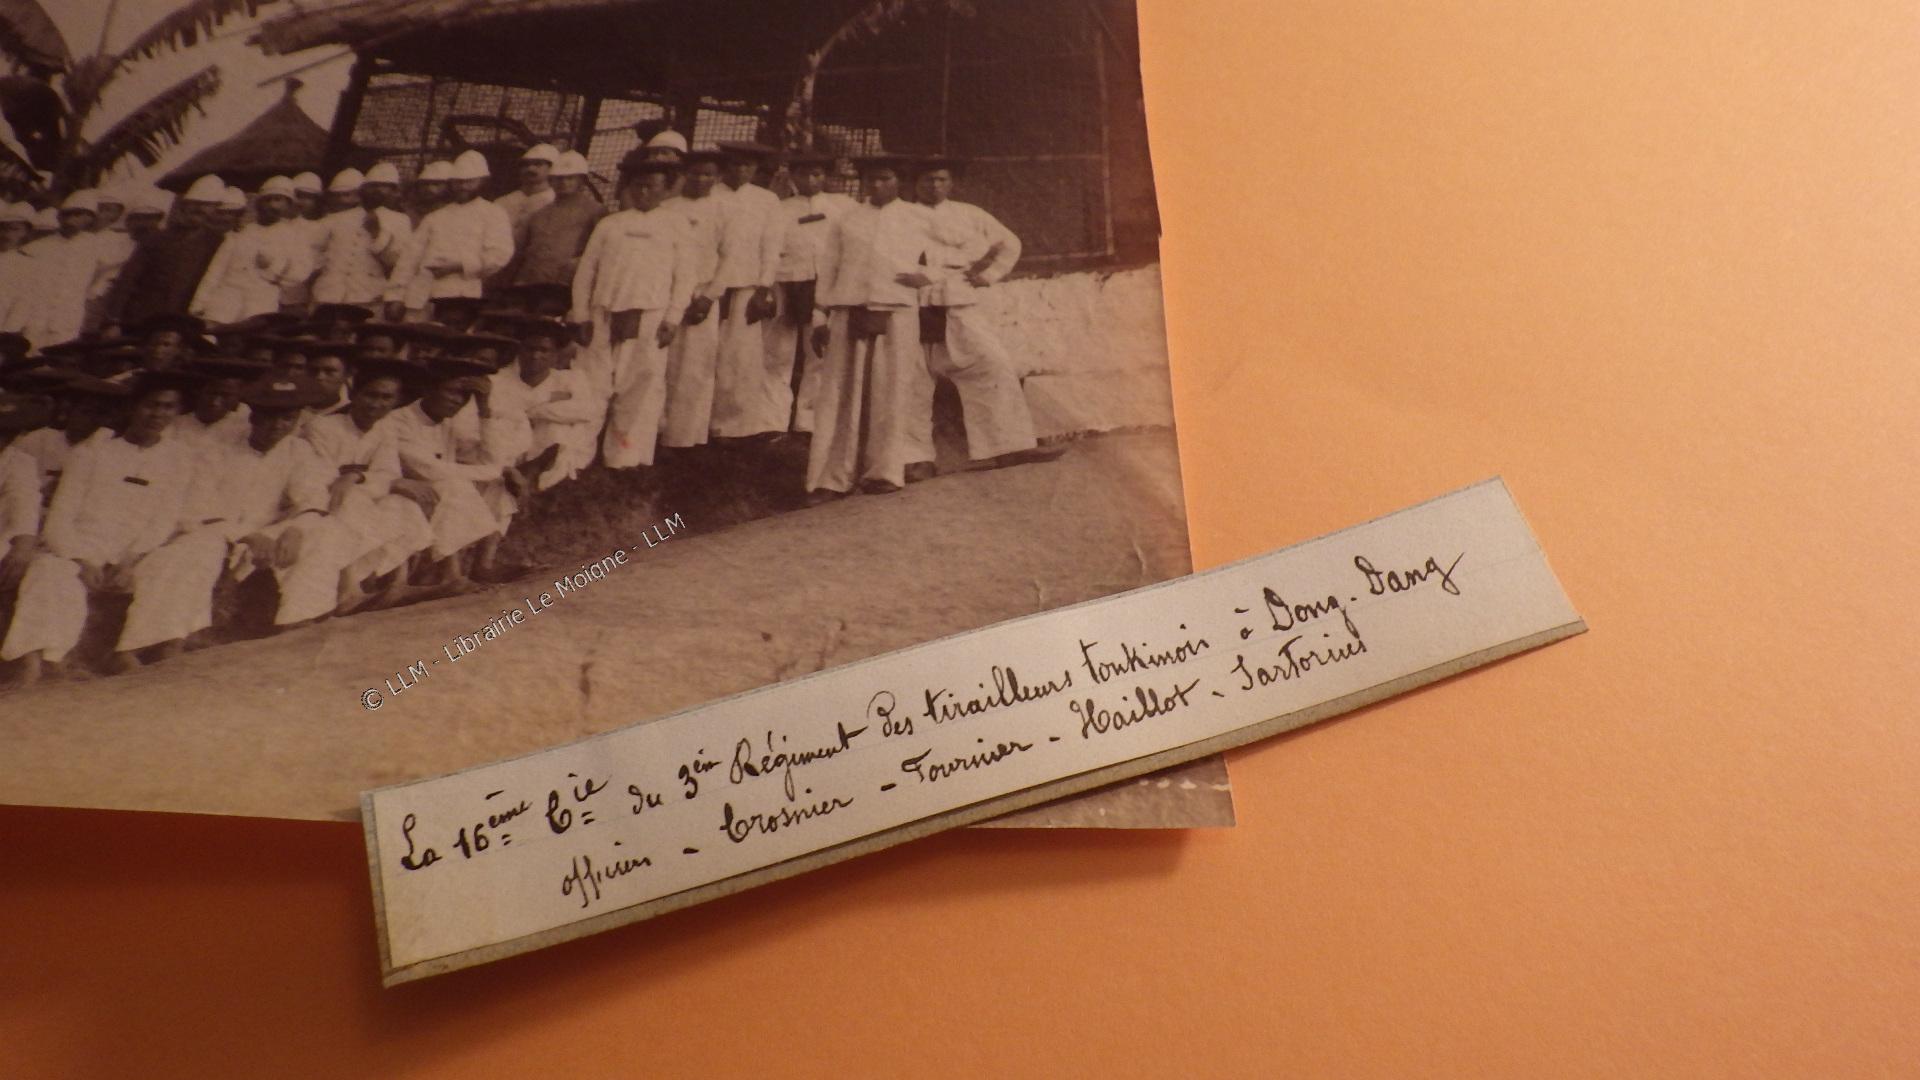 © LLM - Librairie Le Moigne - LLM
La 16ème Cie du 3em Régiment des tirailleurs tonkinois à Dong-Dang
officiers - Crosnier - Fournier - Haillot - Sartorius